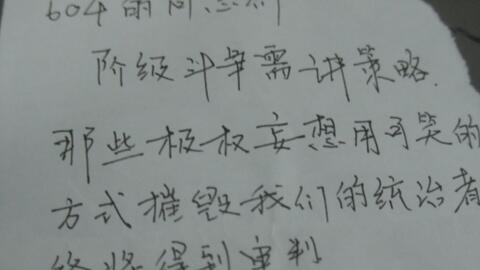 604的同志们
阶级斗争需讲策略.
那些极权妄想用可笑的
方式摧毁我们的统治者
终将得到审判